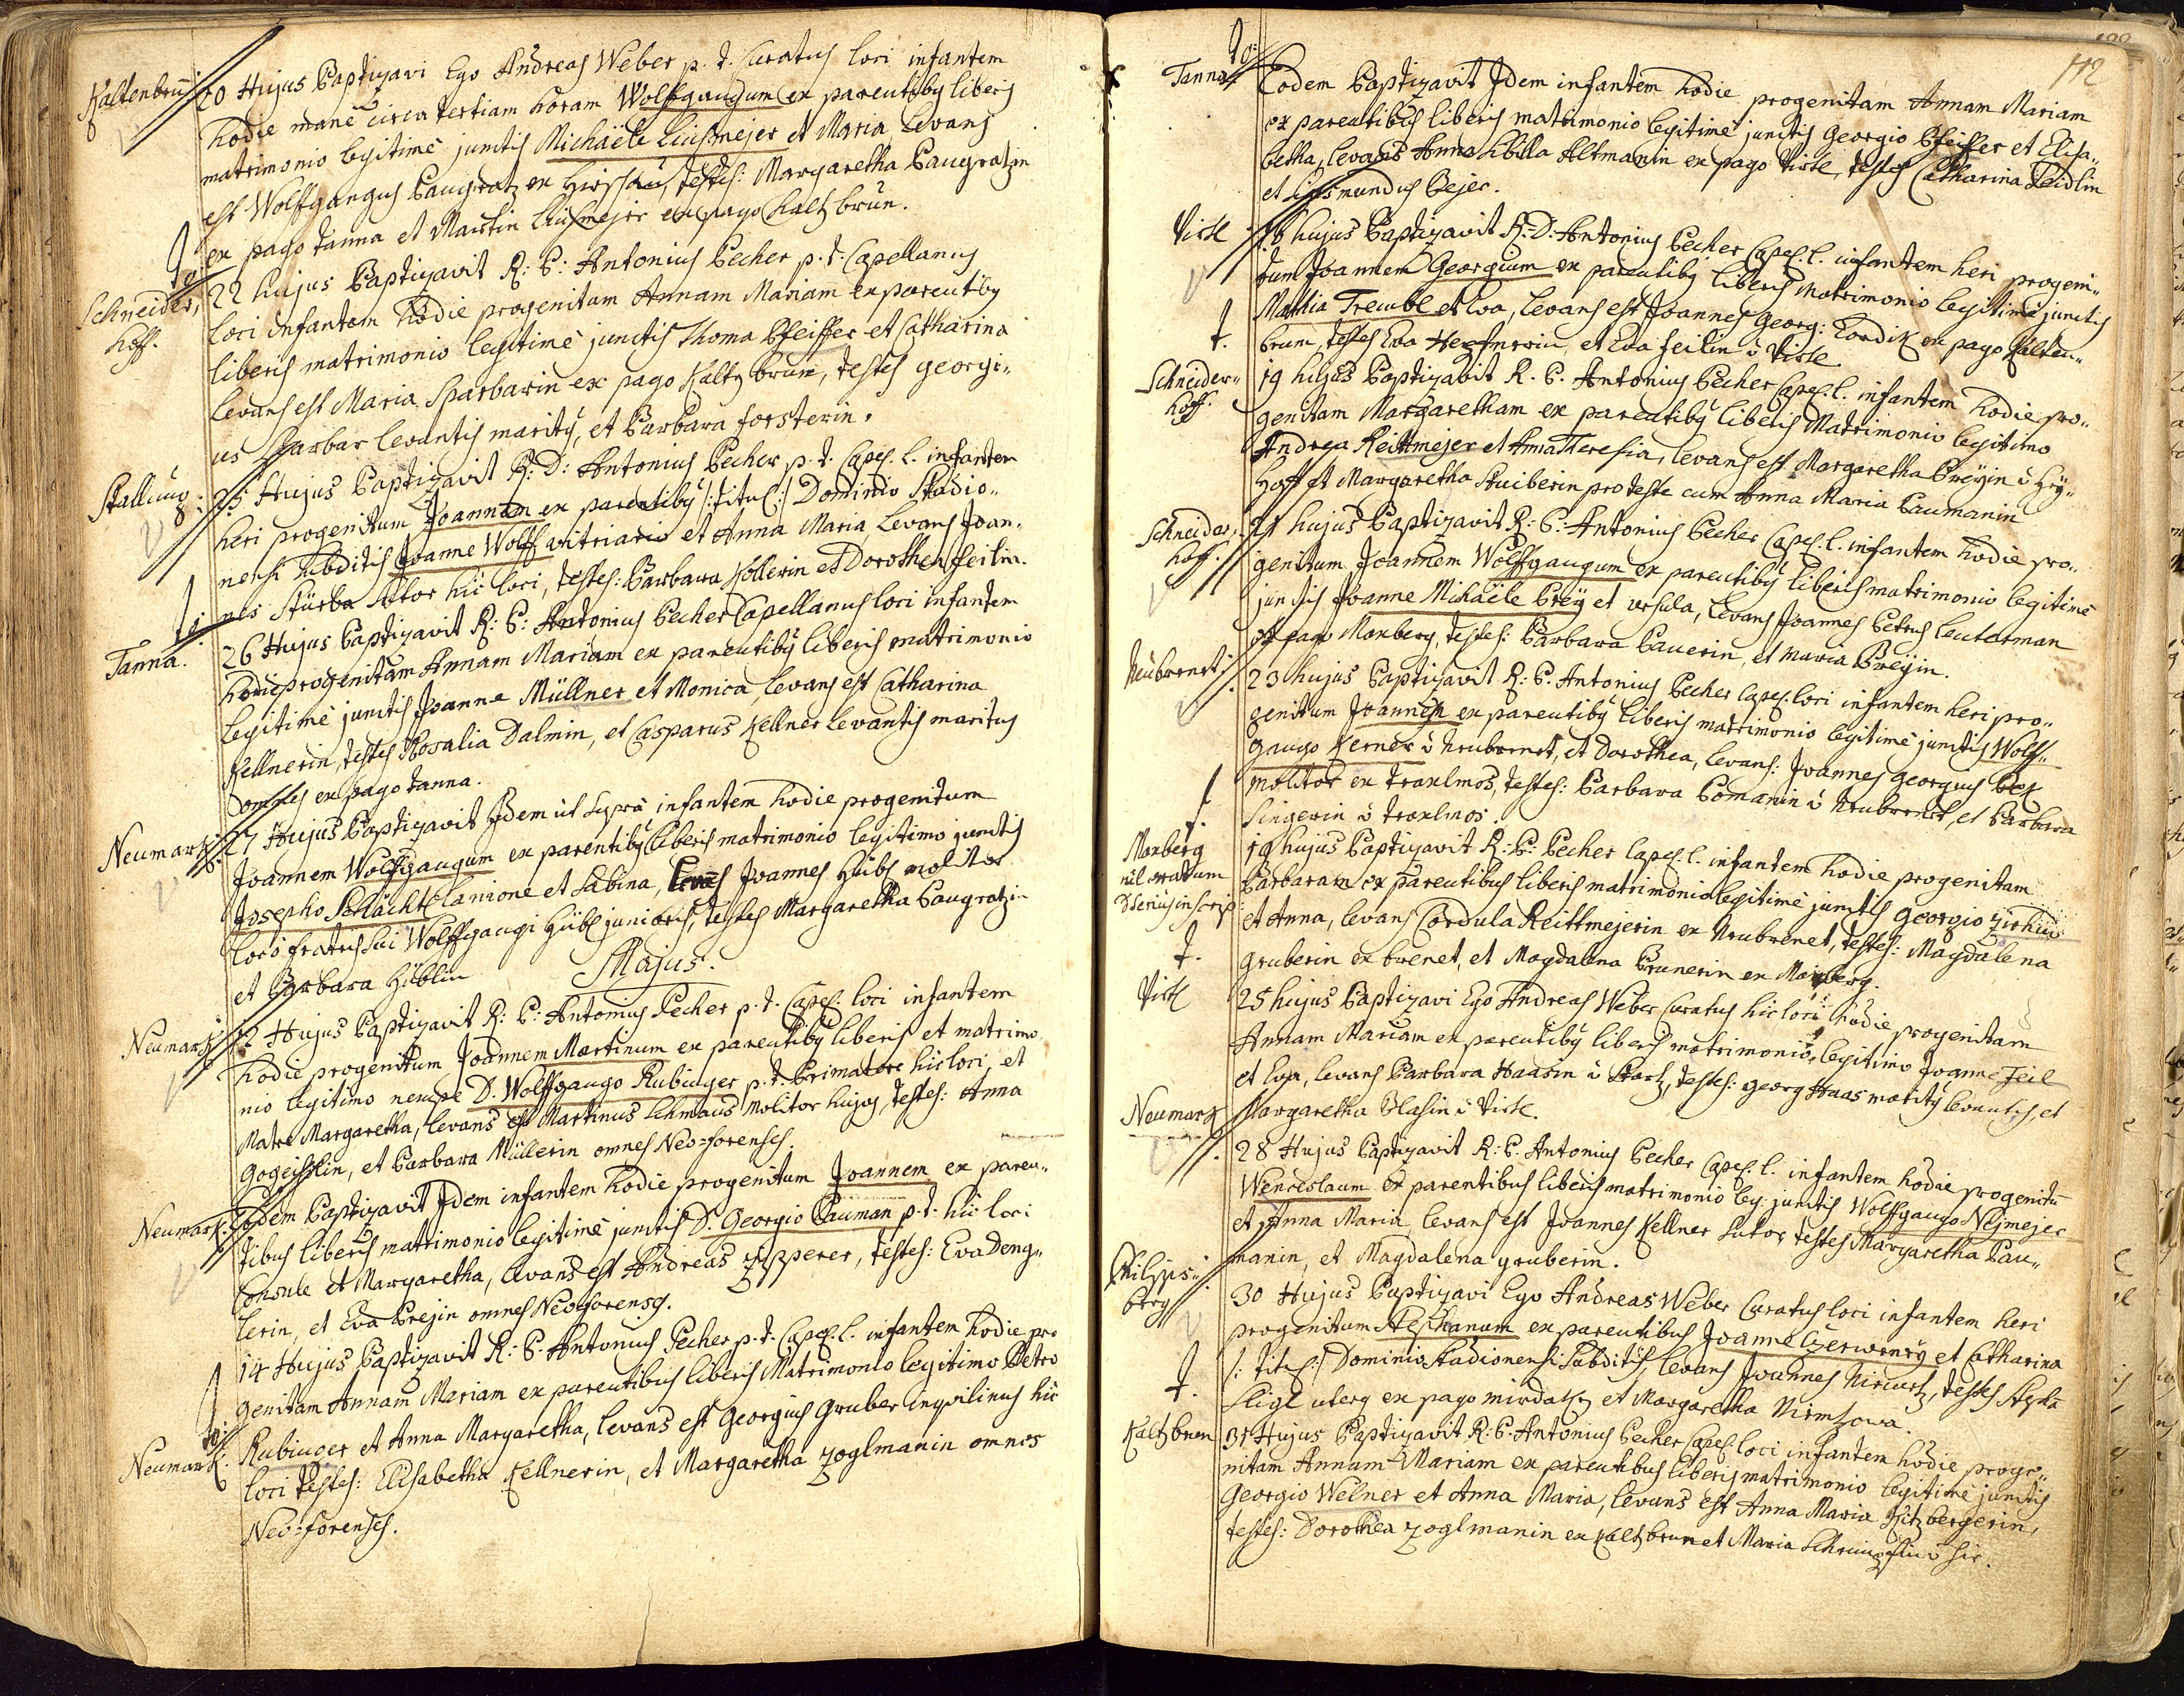 Kaltenbrun
20 Hujus Baptizavi Ego Andreas Weber p. t. Curatus loci infantem
hodie mane circa tertiam horam Wolffgangum ex parentibus liberis
matrimonio legitime junctis Michaele Luismejer et Maria, Levans
est Wolffgangus Baugratz ex Hirschau, testes: Margaretha Baugratzin
ex pago Tanna et Martin Luismejer ex pago Kaltzbrun.
Schneider,
hoff.
22 hujus Baptizavit R: P: Antonius Pecher p. t. Capellanus
loci infantem hodie progenitam Annam Mariam ex parentiby
liberis matrimonio legitime junctis Thoma Pfeiffer et Catharina
Levans est Maria Sparbarin ex pago Kaltzbrun, testes georgi„
us Sparbar levantis marity, et Barbara forsterin.
Stallung:
25 Hujus Baptizavit R: D: Antonius Pecher p. t. Capel. l. infantem
heri progenitum Joannem ex parentiby /: titul :/ Dominio Stadio„
nensi subditis Joanne Wolff vitriario et Anna Maria, Levans Joan„
nes Stürba sutor hic loci, testes: Barbara Köllerin et Dorothea feilin.
Tanna.
26 Hujus Baptizavit R: P: Antonius Pecher Capellanus loci infantem
hodie progenitam Annam Mariam ex parentiby liberis matrimonio
legitime junctis Joanne Müllner et Monica, Levans est Catharina
Kellnerin, testes Rosalia Dalmin, et Casparus Kellner Levantis maritus
omnes ex pago Tanna.
Neumark:
27 Hujus Baptizavit Idem ut supra infantem hodie progenitum
Joannem Wolffgangum ex parentiby liberis matrimonio legitimo junctis
Josepho Schlacht Lanione et Sabina, Levans Joannes Hübl molitor
loco fratris sui Wolffgangi Hübl junioris, testes Margaretha Baugratzin
et Barbara Hüblin
Majus.
Neumark
12 Hujus Baptizavit R: P: Antonius Pecher p. t. Capel: loci infantem
hodie progenitum Joannem Martinum ex parentiby liberis et matrimo
nio legitimo nempe D. Wolffgango Rubinger p. t. Primatore hic loci, et
Matre Margaretha, Levans est Martinus Lehmans Molitor hujas, testes: Anna
Gogeislin, et Barbara Müllerin omnes Neo=forenses.
Neumark:
Eodem Baptizavit Idem infantem hodie progenitum Joannem ex paren„
tibus liberis matrimonio legitime junctis D. Georgio Bauman p. t. hic loci
Consule et Margaretha, Levans est Andreas Zipperer, testes: Eva Deng„
lerin, et Eva Prejin omnes Neoforenses.
Neumark:
14 Hujus Baptizavit R: P. Antonius Pecher p. t. Capel. l. infantem hodie pro
genitam Annam Mariam ex parentibus liberis Matrimonio legitimo Petro
Rubinger et Anna Margaretha, Levans est Georgius Gruber inquilinus hic
loci testes: Elisabetha Kellnerin, et Margaretha Zoglmanin omnes
Neo=forenses.
112
Tanna
Eodem Baptizavit Idem infantem hodie progenitam Annam Mariam
ex parentibus liberis matrimonio legitime junctis Georgio Pfeiffer et Elisa„
betha, Levans Anna Sibilla Altmanin ex pago Viertl, testes Catharina Reidlin
et Sigismundus Bejer.
Viertl
18 hujus Baptizavit R: D: Antonius Pecher Capel. l. infantem heri progeni„
tum Joannem Georgium ex parentiby liberis matrimonio legitime junctis
Mathia Trembl et Eva, Levans est Joannes Georg: Kordik ex pago Kalten„
brun, testes Eva et Eva feilin ù Viertl
Schneider„
hoff.
19 hujus Baptizavit R. P. Antonius Pecher Capel. l. infantem hodie pro„
genitam Margaretham ex parentiby liberis Matrimonio legitimo
Andrea Reittmejer et Anna Theresia, Levans est Margaretha Preÿin ù Hÿ„
hoff et Margaretha Stuiberin pro teste cum Anna Maria Baumanin
Schneider,
hoff.
21 hujus Baptizavit R: P: Antonius Pecher Capel. l. infantem hodie pro„
genitum Joannem Wolffgangum ex parentiby liberis matrimonio legitime
junctis Joanne Michaele Preÿ et Ursula, Levans Joannes Petrus Leuterman
ex pago Maxberg, testes: Barbara Bauerin, et Maria Preÿin.
Neubrenet:
23 hujus Baptizavit R: P. Antonius Pecher Capel. loci infantem heri pro„
genitum Joannem ex parentiby liberis matrimonio legitime junctis Wolff„
gango Kerner ù Neubrenet, et Dorothea, Levans: Joannes Georgius
molitor ex Traxlmos, testes: Barbara Bomanin ù Neubrenet, et Barbara
Singerin ù Traxlmos.
Maxberg
19 hujus Baptizavit R: P: Pecher Capel. l. infantem hodie progenitam
Barbaram ex parentibus liberis matrimonio legitime junctis Georgio Zirhus
et Anna, Levans Cordula Reittmejerin ex Neubrenet, testes: Magdalena
Gruberin ex brenet, et Magdalena Prunerin ex Maxberg.
Viertl
25 hujus Baptizavi Ego Andreas Weber Curatus hic loci hodie progenitam
Annam Mariam ex parentiby liberis matrimonio legitimo Joanne Feil
et Eva, Levans Barbara Haasin ù Stortz, testes: georg Haas marity levantis, et
Margaretha Blasin ù Viertl.
Neumark
28 Hujus Baptizavit R: P. Antonius Pecher Capel. l. infantem hodie progenitū
Wenceslaum ex parentibus liberis matrimonio leg. junctis Wolffgango Nejmejer
et Anna Maria, levans est Joannes Kellner sutor, testes Margaretha Bau„
manin, et Magdalena gruberin.
Philips„
berg
30 Hujus Baptizavi Ego Andreas Weber Curatus loci infantem heri
progenitum Stephanum ex parentibus Joanne Czerwenÿ et Catharina
/: titul :/ Dominio Stadionensi Subditis, Levans Joannes Nirturtz, testes Steph
Sligl uterq ex pago mirdatz et Margaretha Nimtzowa.
Kaltzbrun
31 Hujus Baptizavit R: P. Antonius Pecher Capel. loci infantem hodie proge„
nitam Annam Mariam ex parentibus liberis matrimonio legitime junctis
Georgio Welner et Anna Maria, Levans est Anna Maria Hitzbergerin,
testes: Dorothea Zoglmanin ex Kaltzbrun et Maria